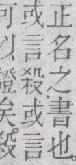 正名之書也
或言殺或言
可以證矣殺